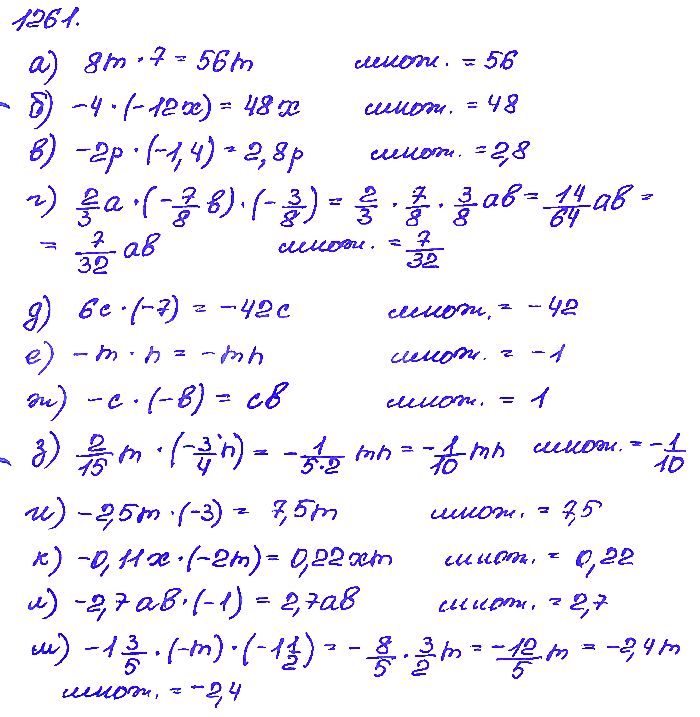 1261.
а) 8m · 7 = 56m множ. = 56
б) -4 · (-12x) = 48x множ. = 48
в) -2p · (-1,4) = 2,8p множ. = 2,8
г) 2/3 a · (-7/8 b) · (-3/8) = 2/3 · 7/8 · 3/8 ab = 14/64 ab =
= 7/32 ab множ. = 7/32
д) 6c · (-7) = -42c множ. = -42
е) -m · n = -mn множ. = -1
ж) -c · (-b) = cb множ. = 1
з) 2/15 m · (-3/4 n) = -1/5·2 mn = -1/10 mn множ. = -1/10
и) -2,5m · (-3) = 7,5m множ. = 7,5
к) -0,11x · (-2m) = 0,22xm множ. = 0,22
л) -2,7ab · (-1) = 2,7ab множ. = 2,7
м) -1 3/5 · (-m) · (-1 1/2) = -8/5 · 3/2 m = -12/5 m = -2,4m
множ. = -2,4